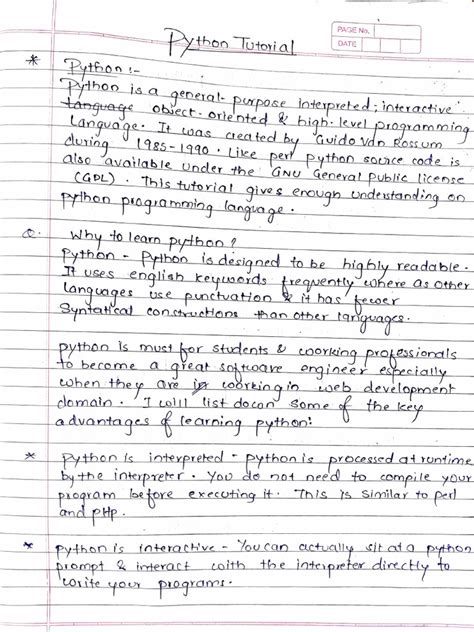 Python Tutorial
PAGE No.
DATE
* Python :-
Python is a general-purpose interpreted, interactive
language object-oriented & high-level programming
Language. It was created by Guido Van Rossum
during 1985-1990. Like perl python source code is
also available under the GNU General public license
(GPL). This tutorial gives enough understanding on
python programming language.
Q. Why to learn python?
Python - Python is designed to be highly readable.
It uses english keywords frequently where as other
Languages use punctuation & it has fewer
Syntatical constructions than other languages.
python is must for students & working professionals
to become a great software engineer especially
when they are in working in web development
domain. I will list down some of the key
advantages of learning python:
* Python is interpreted - python is processed at runtime
by the interpreter. You do not need to compile your
program before executing it. This is similar to perl
and PHP.
* python is interactive - You can actually sit at a python
prompt & interact with the interpreter directly to
write your programs.